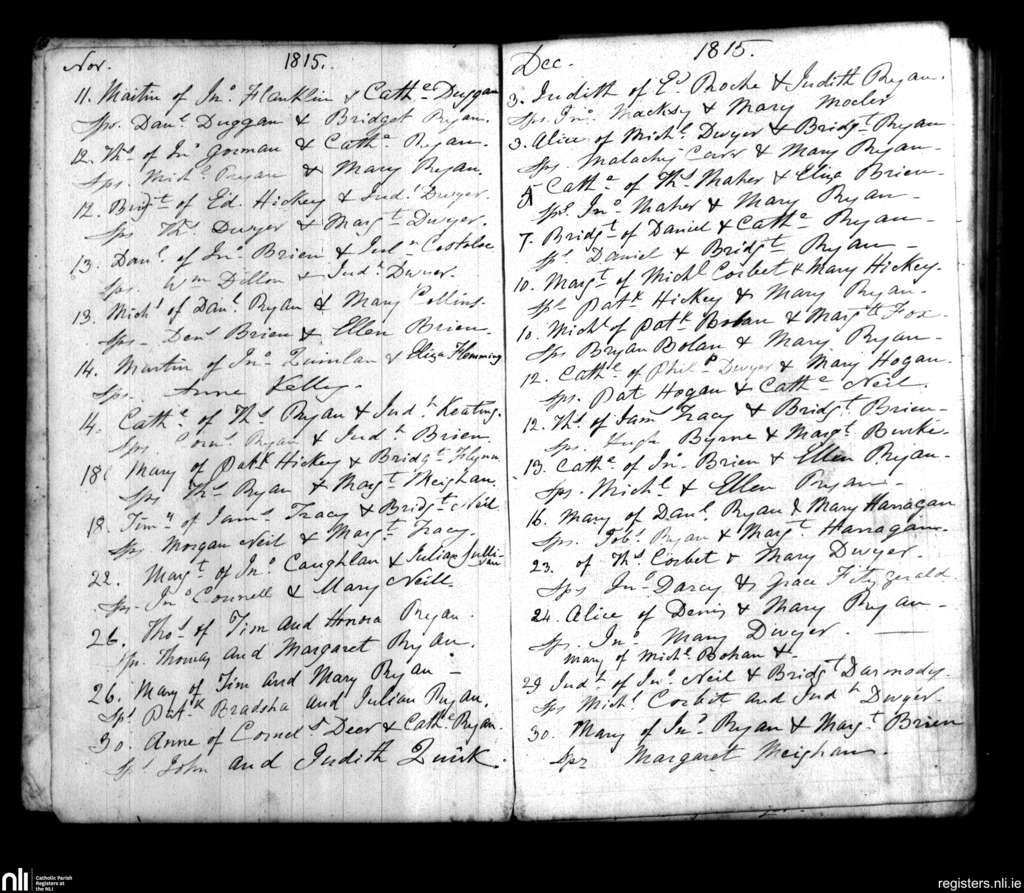 Nov. 1815.
11. Martin of Jno. Hanklin & Cathe Duggan
Sps. Danl Duggan & Bridget Ryan.
12. Ths of Jno Gorman & Cathe Ryan.
Sps. Michl Ryan & Mary Ryan.
12. Bridgt of Ed. Hickey & Judt Dwyer.
Sps Ths Dwyer & Margt Dwyer.
13. Danl of Jno. Brien & Costoloe
Sps. Wm Dillon & Judh Dwyer.
13. Michl of Danl Ryan & Mary Collins.
Sps. Dens Brien & Ellen Brien.
14. Martin of Jno Quinlan & Eliza Flemming
Sps. Anne Kelley.
14. Cathe of Ths Ryan & Judh Keating.
Sps Ryan & Judh Brien.
18. Mary of Patk Hickey & Bridgt Flynn
Sps Ths Ryan & Margt Meighan.
18. Timy of Jams Tracy & Bridgt Neil
Sps Morgan Neil & Margt Tracy.
22. Margt of Jno Caughlan & Julian Sullivan
Sps. Jno Connell & Mary Neill
26. Thos of Tim and Honora Ryan.
Sps. Thomas and Margaret Ryan.
26. Mary of Tim and Mary Ryan -
Sps Patk Bradsha and Julian Ryan.
30. Anne of Cornels Deer & Cathe Ryan.
Sps John and Judith Quirk.
Dec. 1815.
3. Judith of Ed Roche & Judith Ryan.
Sps. Jno. Macksy & Mary Mocler
3. Alice of Michl Dwyer & Bridgt Ryan
Sps Malachy Carr & Mary Ryan -
5 Cathe of Ths Maher & Eliza Brien -
Sps. Jno Maher & Mary Ryan -
7. Bridgt of Daniel & Cathe Ryan -
Sps. Daniel & Bridgt Ryan -
10. Margt of Michl Corbet & Mary Hickey.
Sps Patk Hickey & Mary Ryan -
10. Michl of Patk Bolan & Margt Fox -
Sps Bryan Bolan & Mary Ryan -
12. Cathe of Philp Dwyer & Mary Hogan.
Sps. Pat Hogan & Cathe Neil.
12. Ths of Jams Tracy & Bridgt Brien -
Sps. Hugh Byrne & Margt Burke -
13. Cathe of Jno. Brien & Ellen Ryan -
Sps. Michl & Ellen Ryan -
16. Mary of Danl Ryan & Mary Hanagan
Sps. Ryan & Margt Hanagan -
23. of Ths Corbet & Mary Dwyer.
Sps Jno Darcy & Grace Fitzgerald.
24. Alice of Denis & Mary Ryan -
Sps. Jno. Mary Dwyer.
Mary of Michl Bohan &
29 Judh of Jno Neil & Bridgt Darmody.
Sps Michl Corbet and Judh Dwyer
30. Mary of Jno Ryan & Margt Brien
Sps Margaret Meighan.
nli
Catholic Parish
Registers at
the NLI
registers.nli.ie